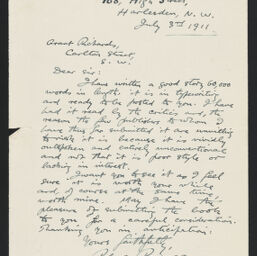 High Street,
Harlesden, N.W.
July 3rd 1911.
Grant Richards,
Carlton Street,
S.W.
Dear Sir:
I have written a good story 60,000
words in length. it is in typewriting
and ready to be posted to you. I have
had it read by the critics and, the
reason the publishers to whom I
have thus far submitted it are unwilling
to risk it is because it is vividly
outspoken and entirely unconventional
and not that it is poor style or
lacking in interest.
I want you to see it as I feel
sure it is worth your while
and of course at the same time
worth mine. May I have the
pleasure of submitting the book
to you for a careful consideration.
Thanking you in anticipation:
Yours faithfully,